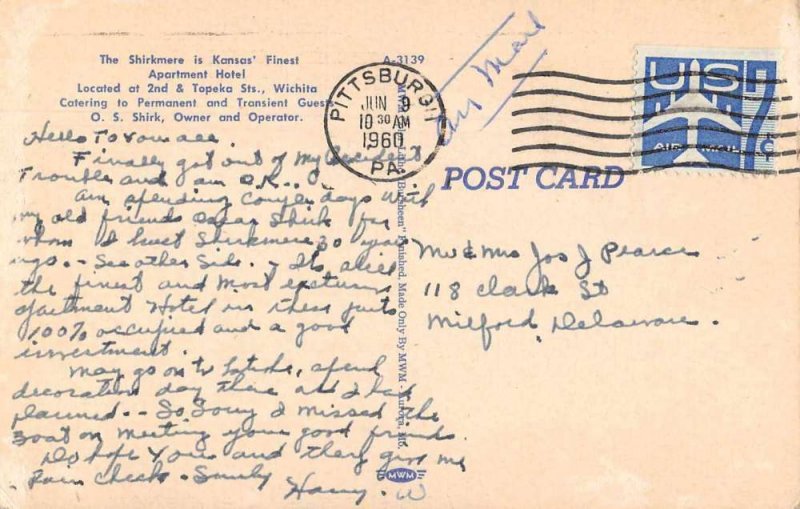 The Shirkmere is Kansas' Finest
Apartment Hotel
Located at 2nd & Topeka Sts., Wichita
Catering to Permanent and Transient Guests
O. S. Shirk, Owner and Operator.
A-3139
PITTSBURGH
JUN 9
10 30 AM
1960
PA.
Air Mail
US 7¢
AIR MAIL
POST CARD
Hello To You all.
Finally got out of My Accident
Trouble and am O.K..
Am spending Couple days with
my old friends Oscar Shirk for
whom I built Shirkmere 30 years
ago. - See other Side. - Its still
the finest and most exclusive
apartment Hotel in these parts
100% occupied and a good
investment.
May go on to spend
decoration day there as I had
planned. - So Sorry I missed the
boat on meeting your good friends.
Do hope You and they give me
Rain Check.
Harry. W
Mr & Mrs Jos J Pearce
118 Clark St
Milford, Delaware.
Finished. Made Only By MWM - Aurora, Mo.
MWM